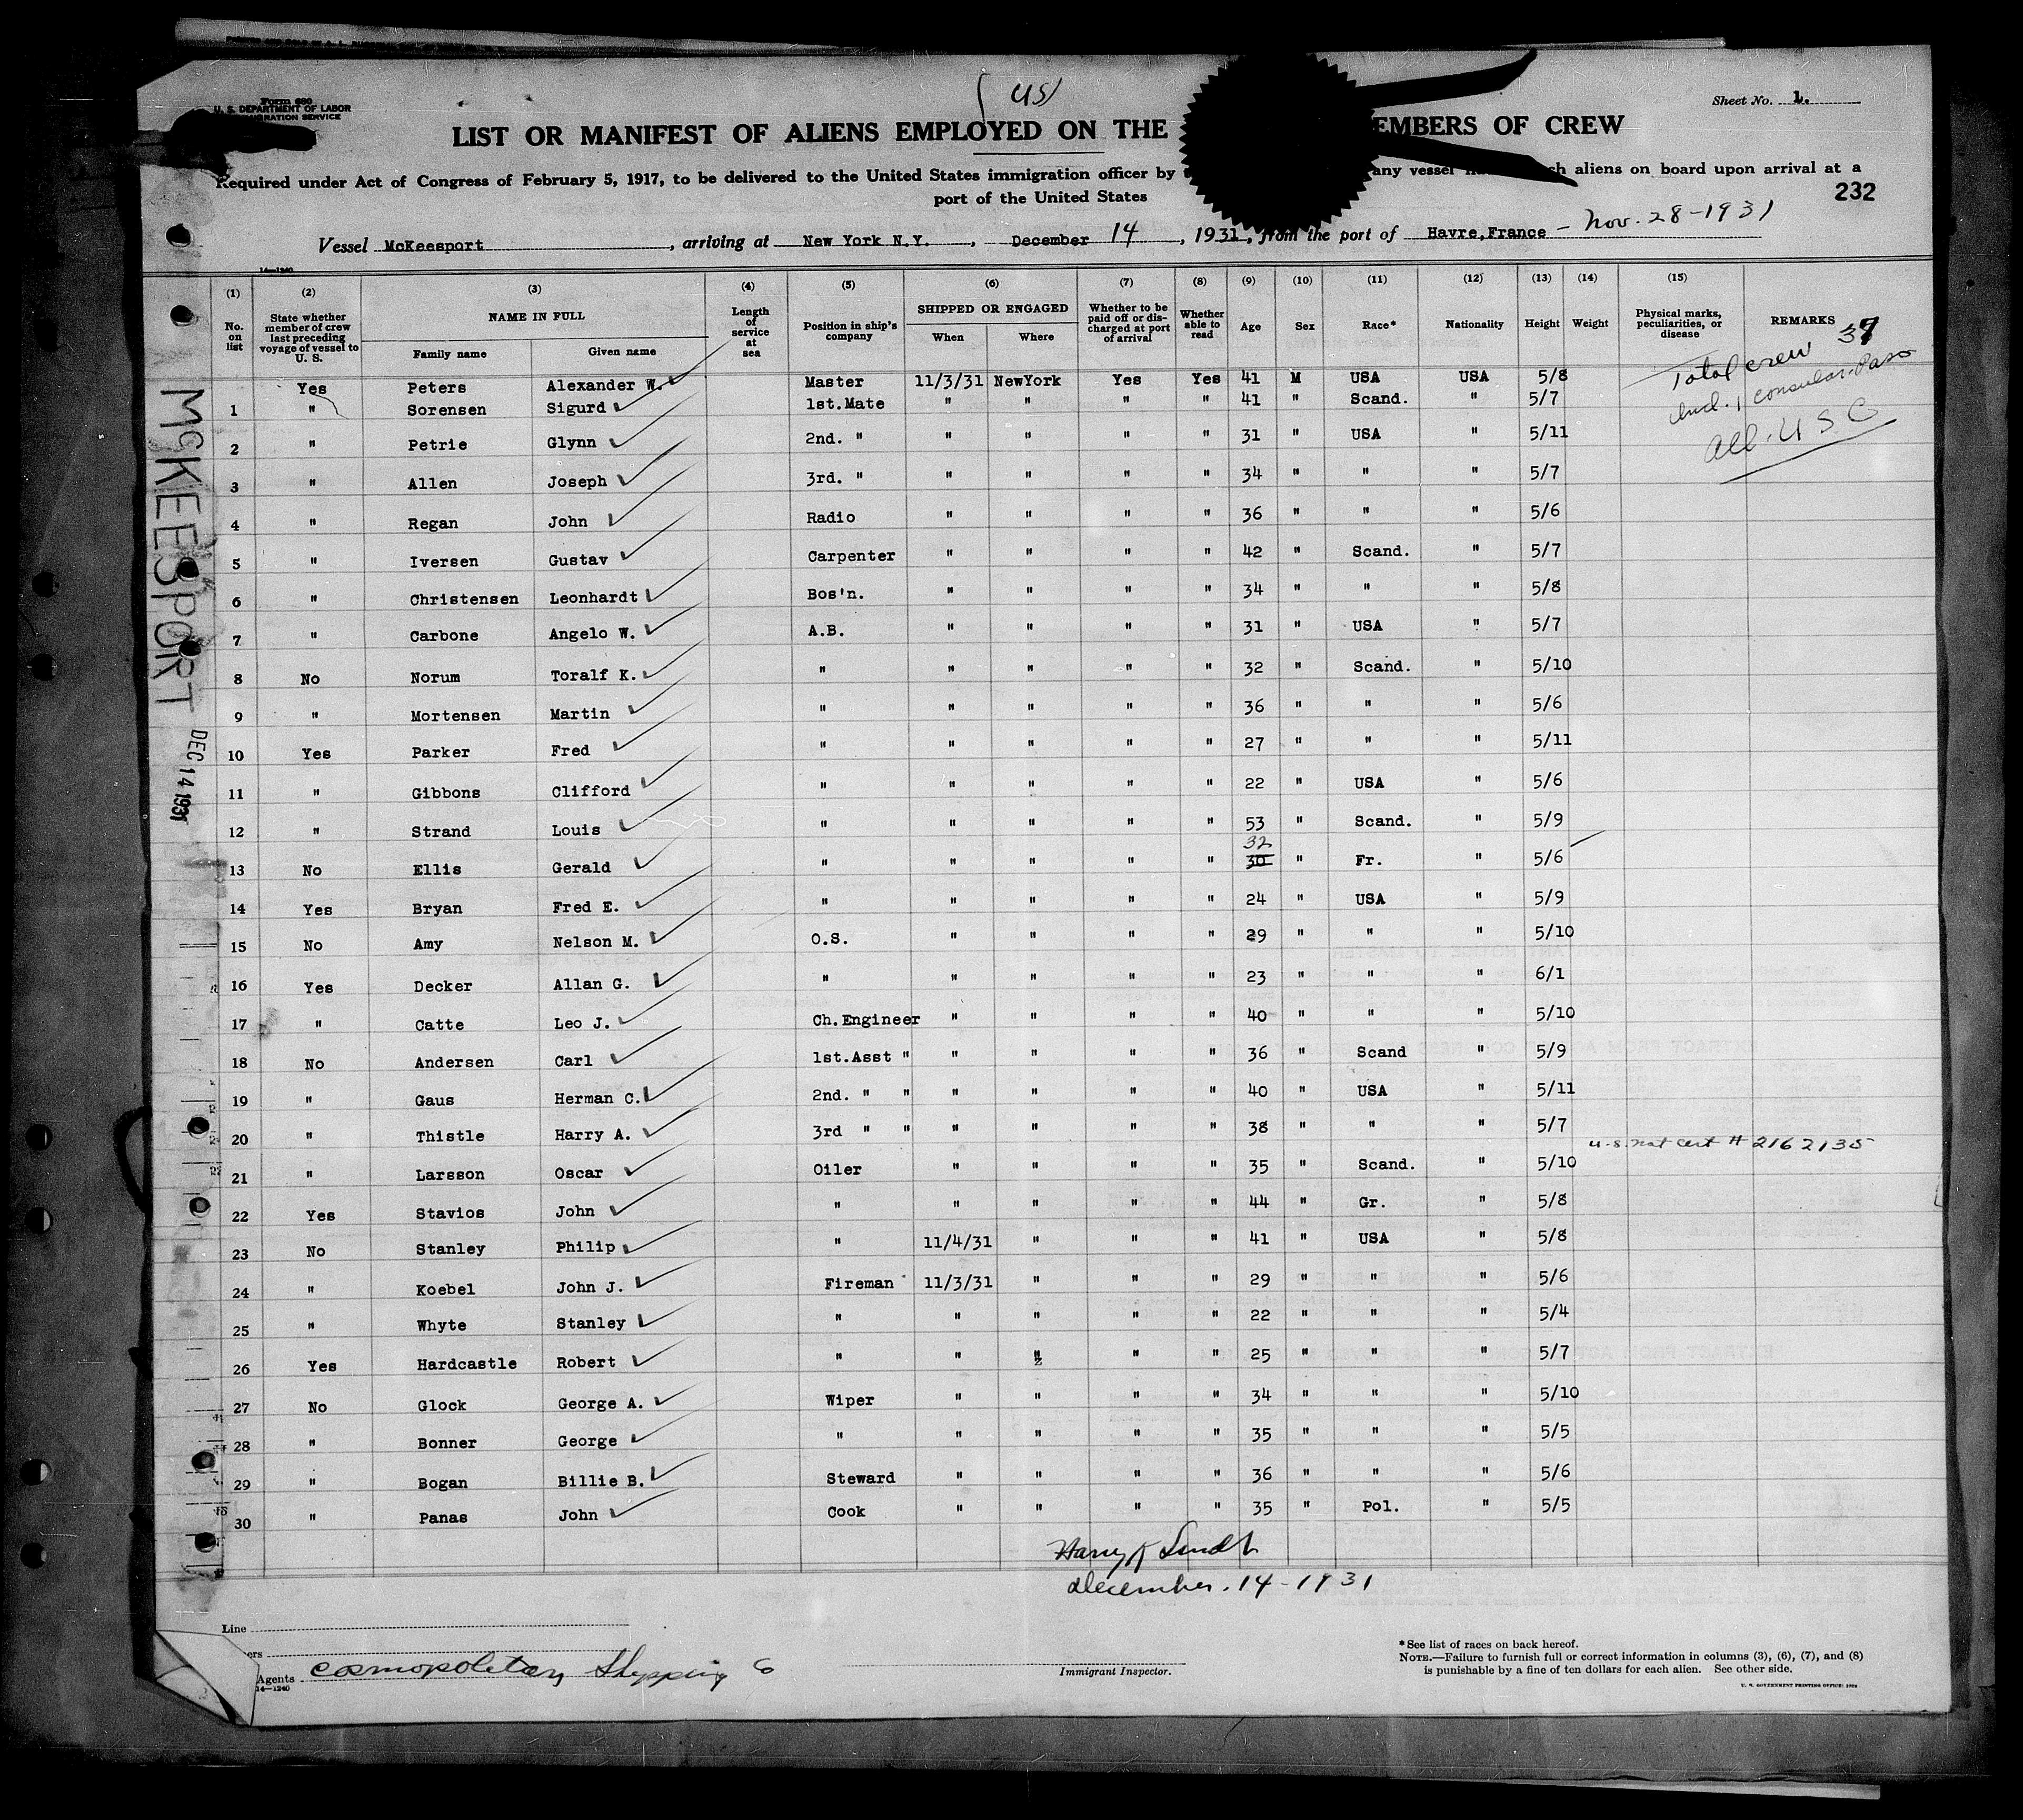 Form 680
U. S. DEPARTMENT OF LABOR
IMMIGRATION SERVICE
US
Sheet No. 1.
LIST OR MANIFEST OF ALIENS EMPLOYED ON THE EMBERS OF CREW
Required under Act of Congress of February 5, 1917, to be delivered to the United States immigration officer by any vessel aliens on board upon arrival at a
port of the United States
232
Vessel McKeesport, arriving at New York N.Y., December 14, 1931, from the port of Havre,France - Nov. 28-1931
14-1240
(1) (2) (3) (4) (5) (6) (7) (8) (9) (10) (11) (12) (13) (14) (15)
No. on list State whether member of crew last preceding voyage of vessel to U. S. NAME IN FULL Family name Given name Length of service at sea Position in ship's company SHIPPED OR ENGAGED When Where Whether to be paid off or discharged at port of arrival Whether able to read Age Sex Race* Nationality Height Weight Physical marks, peculiarities, or disease REMARKS
Total crew 37
Incl. 1 consular Pass
All. U S C
Yes Peters Alexander W. Master 11/3/31 NewYork Yes Yes 41 M USA USA 5/8
1 " Sorensen Sigurd 1st.Mate " " " " 41 " Scand. " 5/7
2 " Petrie Glynn 2nd. " " " " " 31 " USA " 5/11
3 " Allen Joseph 3rd. " " " " " 34 " " " 5/7
4 " Regan John Radio " " " " 36 " " " 5/6
5 " Iversen Gustav Carpenter " " " " 42 " Scand. " 5/7
6 " Christensen Leonhardt Bos'n. " " " " 34 " " " 5/8
7 " Carbone Angelo W. A.B. " " " " 31 " USA " 5/7
8 No Norum Toralf K. " " " " " 32 " Scand. " 5/10
9 " Mortensen Martin " " " " " 36 " " " 5/6
10 Yes Parker Fred " " " " " 27 " " " 5/11
11 " Gibbons Clifford " " " " " 22 " USA " 5/6
12 " Strand Louis " " " " " 53 " Scand. " 5/9
13 No Ellis Gerald " " " " " 30 32 " Fr. " 5/6
14 Yes Bryan Fred E. " " " " " 24 " USA " 5/9
15 No Amy Nelson M. O.S. " " " " 29 " " " 5/10
16 Yes Decker Allan G. " " " " " 23 " " " 6/1
17 " Catte Leo J. Ch.Engineer " " " " 40 " " " 5/10
18 No Andersen Carl 1st.Asst " " " " " 36 " Scand " 5/9
19 " Gaus Herman C. 2nd. " " " " " " 40 " USA " 5/11
20 " Thistle Harry A. 3rd " " " " " " 38 " " " 5/7
U.S. nat cert # 2162135
21 " Larsson Oscar Oiler " " " " 35 " Scand. " 5/10
22 Yes Stavios John " " " " " 44 " Gr. " 5/8
23 No Stanley Philip " 11/4/31 " " " 41 " USA " 5/8
24 " Koebel John J. Fireman 11/3/31 " " " 29 " " " 5/6
25 " Whyte Stanley " " " " " 22 " " " 5/4
26 Yes Hardcastle Robert " " " " " 25 " " " 5/7
27 No Glock George A. Wiper " " " " 34 " " " 5/10
28 " Bonner George " " " " " 35 " " " 5/5
29 " Bogan Billie B. Steward " " " " 36 " " " 5/6
30 " Panas John Cook " " " " 35 " Pol. " 5/5
MCKEESPORT
DEC 14 1931
December. 14-1931
Line
Agents Cosmopolitan Shipping Co
14-1240
Immigrant Inspector.
*See list of races on back hereof.
NOTE.—Failure to furnish full or correct information in columns (3), (6), (7), and (8)
is punishable by a fine of ten dollars for each alien. See other side.